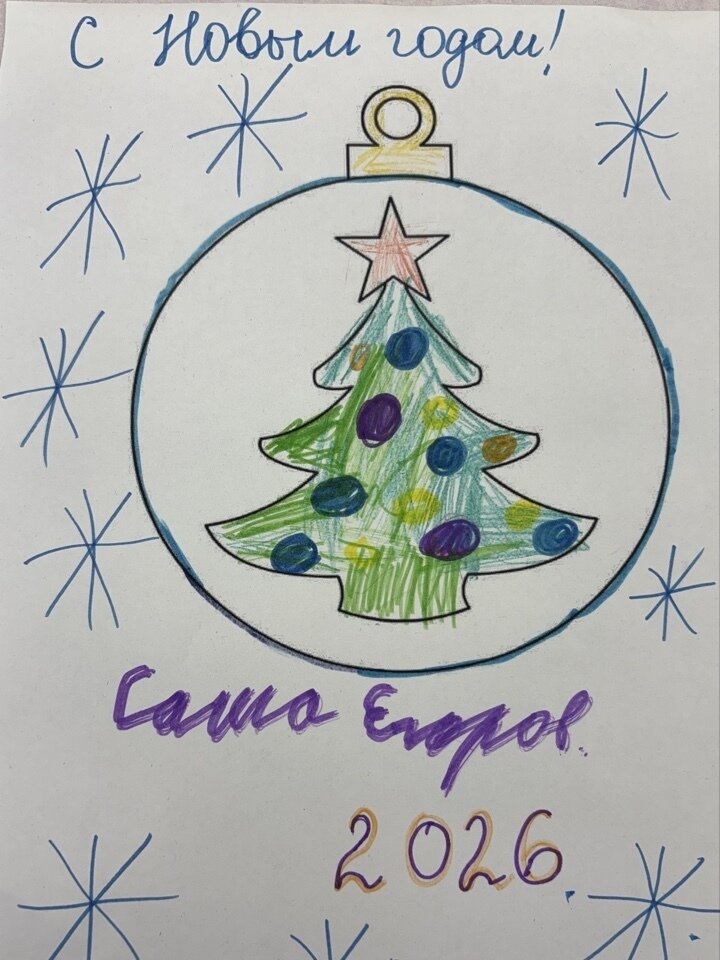 С Новым годом!
Саша Егоров.
2026.